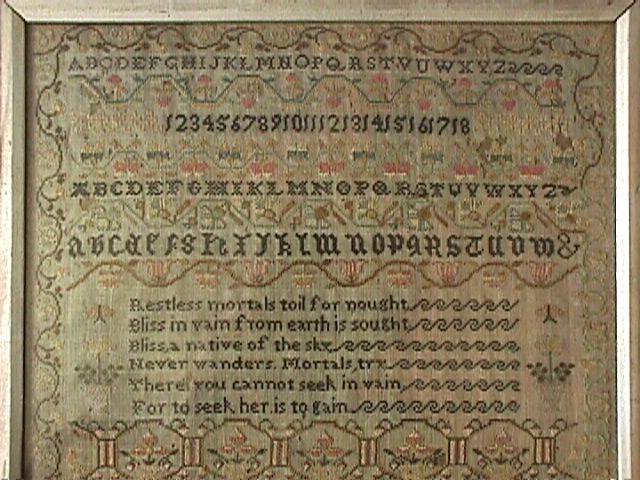 ABCDEFGHIJKLMNOPQRSTVUWXYZ
123456789101112131415161718
ABCDEFGHIKLMNOPQRSTUVWXYZ
abcdefghIJklmnopqRSTUvw&
Restless mortals toil for nought
Bliss in vain from earth is sought
Bliss, a native of the sky
Never wanders. Mortals, try
There! you cannot seek in vain
For to seek her is to gain